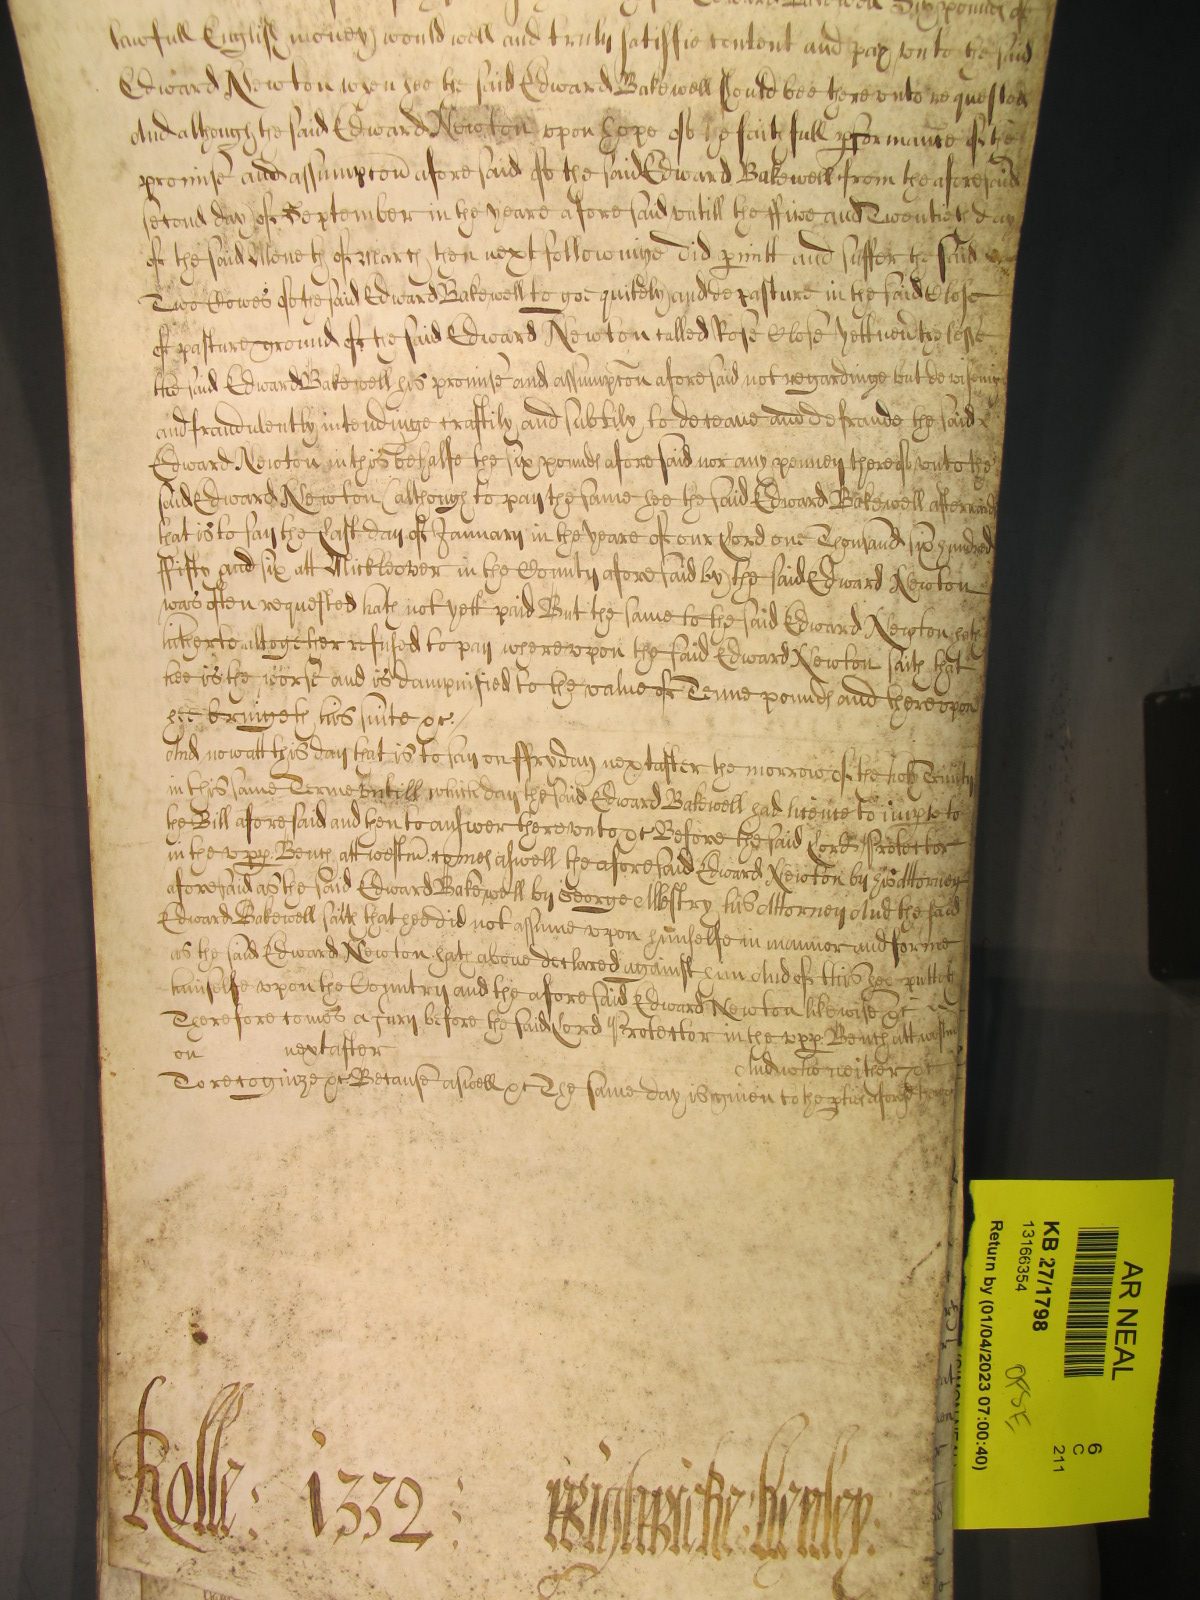 Edward Bakewell Six pounds of
lawfull English money would well and truly satisfie content and pay vnto the said
Edward Newton when hee the said Edward Bakewell should bee therevnto requested
And although the said Edward Newton vpon hope of the faithfull pformance of the
promise and assumpton aforesaid of the said Edward Bakewell from the aforesaid
second day of September in the yeare aforesaid vntill the ffive and Twentieth day
of the said Moneth of March then next followinge did pmitt and suffer the said
Two Cowes of the said Edward Bakewell to goe quitely and depasture in the said Close
of pasture ground of the said Edward Newton called Rose Close Yett nevthelesse
the said Edward Bakewell his promise and assumpton aforesaid not regardinge but devisinge
and fraudulently intendinge craftily and subtily to deceave and defraude the said
Edward Newton in this behalfe the six pounds aforesaid nor any penney thereof vnto the
said Edward Newton (although to pay the same hee the said Edward Bakewell afterwards
that is to say the last day of January in the yeare of our Lord one Thousand six hundred
ffifty and six att Mickleover in the County aforesaid by the said Edward Newton
was often requested hath not yett paid But the same to the said Edward Newton hath
hitherto altogether refused to pay wherevpon the said Edward Newton saith that
hee is the worse and is dampnified to the value of Tenne pounds and therevpon
hee bringeth his suite &c.
And now att this day that is to say on ffryday next after the morrow of the holy Trinity
in this same Terme vntill which day the said Edward Bakewell had licence to imple to
the Bill aforesaid and then to answer therevnto &c Before the said Lord Protector
in the vpp Bench att westm comes aswell the aforesaid Edward Newton by his Attorney
aforesaid as the said Edward Bakewell by George Allestry his Attorney And the said
Edward Bakewell saith that hee did not assume vpon himselfe in manner and forme
as the said Edward Newton hath above declared against him And of this hee putteth
himselfe vpon the Country and the aforesaid Edward Newton likewise &c
Therefore comes a Jury before the said Lord Protector in the vpp Bench att westm
on next after And who neither &c
To recognize &c Because aswell &c The same day is given to the pties aforesd
Rolle: 1332: Wightwicke: Henley:
AR NEAL
KB 27/1798
13166354
Return by (01/04/2023 07:00:40)
6
C
211